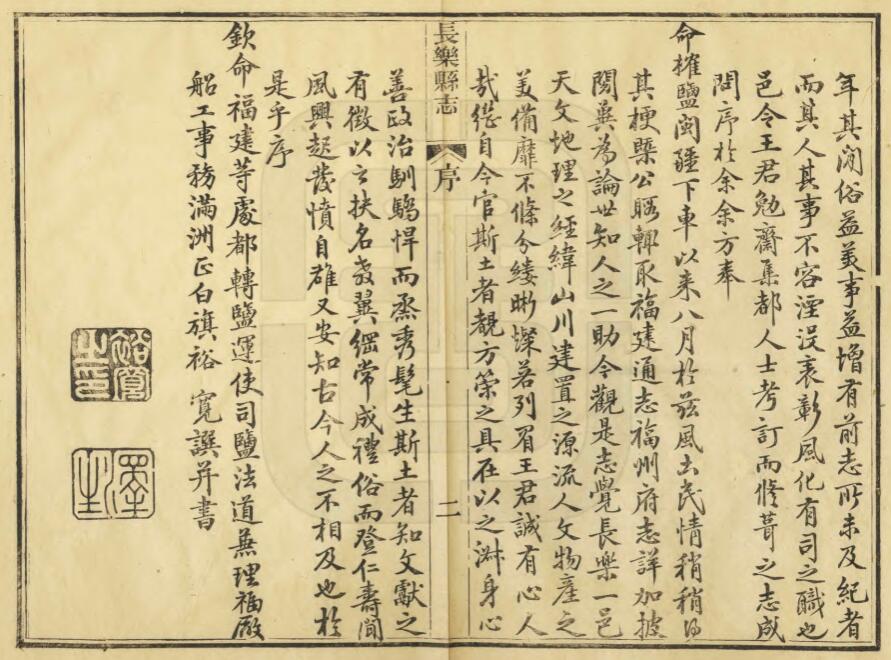 年其間俗益美事益增有前志所未及紀者
而其人其事不容湮没表彰風化有司之職也
邑令王君勉齋集都人士考訂而修葺之志成
問序於余余方奉
命榷鹽閩疆下車以来八月於兹風土民情稍稍得
其梗槩公暇輙取福建通志福州府志詳加披
閱冀為論世知人之一助今觀是志覺長樂一邑
天文地理之經緯山川建置之源流人文物產之
美備靡不條分縷晰燦若列眉王君誠有心人
哉継自今官斯土者覩方策之具在以之淑身心
長樂縣志
序
二
善政治馴驕悍而烝秀髦生斯土者知文獻之
有徵以之扶名教翼綱常成禮俗而登仁壽聞
風興起發憤自雄又安知古今人之不相及也於
是乎序
欽命福建等處都轉鹽運使司鹽法道兼理福厰
船工事務滿洲正白旗裕寬譔并書
裕寬之印